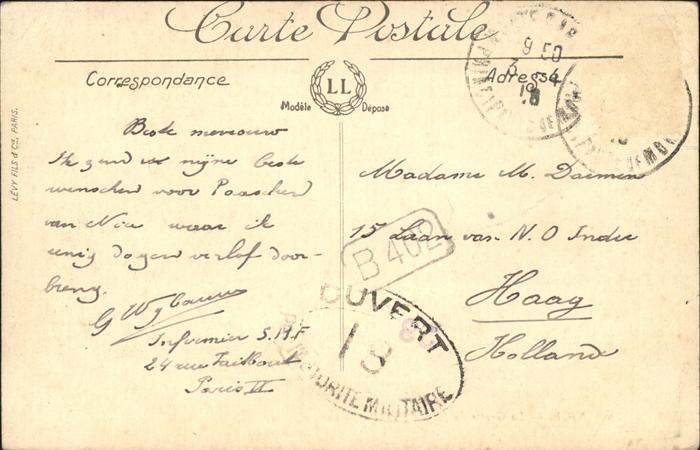 Carte Postale
Correspondance
LL
Modèle Déposé
Adresse
LÉVY FILS & Cie, PARIS.
9 50
3 4
18
PRINCIPAUTÉ DE MON
Beste mevrouw
Ik zend u mijne beste
wenschen voor Paaschen
van Nice waar ik
eenig dagen verlof door-
breng.
G W
Infirmier S.M.F
24 rue Taitbout
Paris II
Madame M. Daemen
15 Laan van N. O Indie
Haag
Holland
B 402
OUVERT
PAR AUTORITÉ MILITAIRE